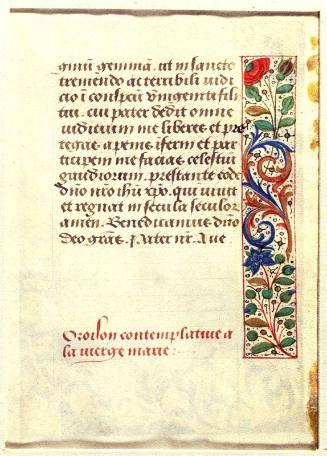 ginu͂ gemmā. ut in sancto
tremendo ac terribili iudi
cio i conspectu vnigeniti filii
tui. cui pater dedit omne
iudicium me liberes et pro
tegas a penis iferni et par
ticipem me facias celestiu͂
gaudiorum. prestante eodē
dn͂o nr͂o ih͂u xp͂o. qui viuit
et regnat in secula seculor
amen. Benedicamus dn͂o
deo gr͂as. Pater nr͂. Aue
Oroison contemplatiue a
la vierge marie: